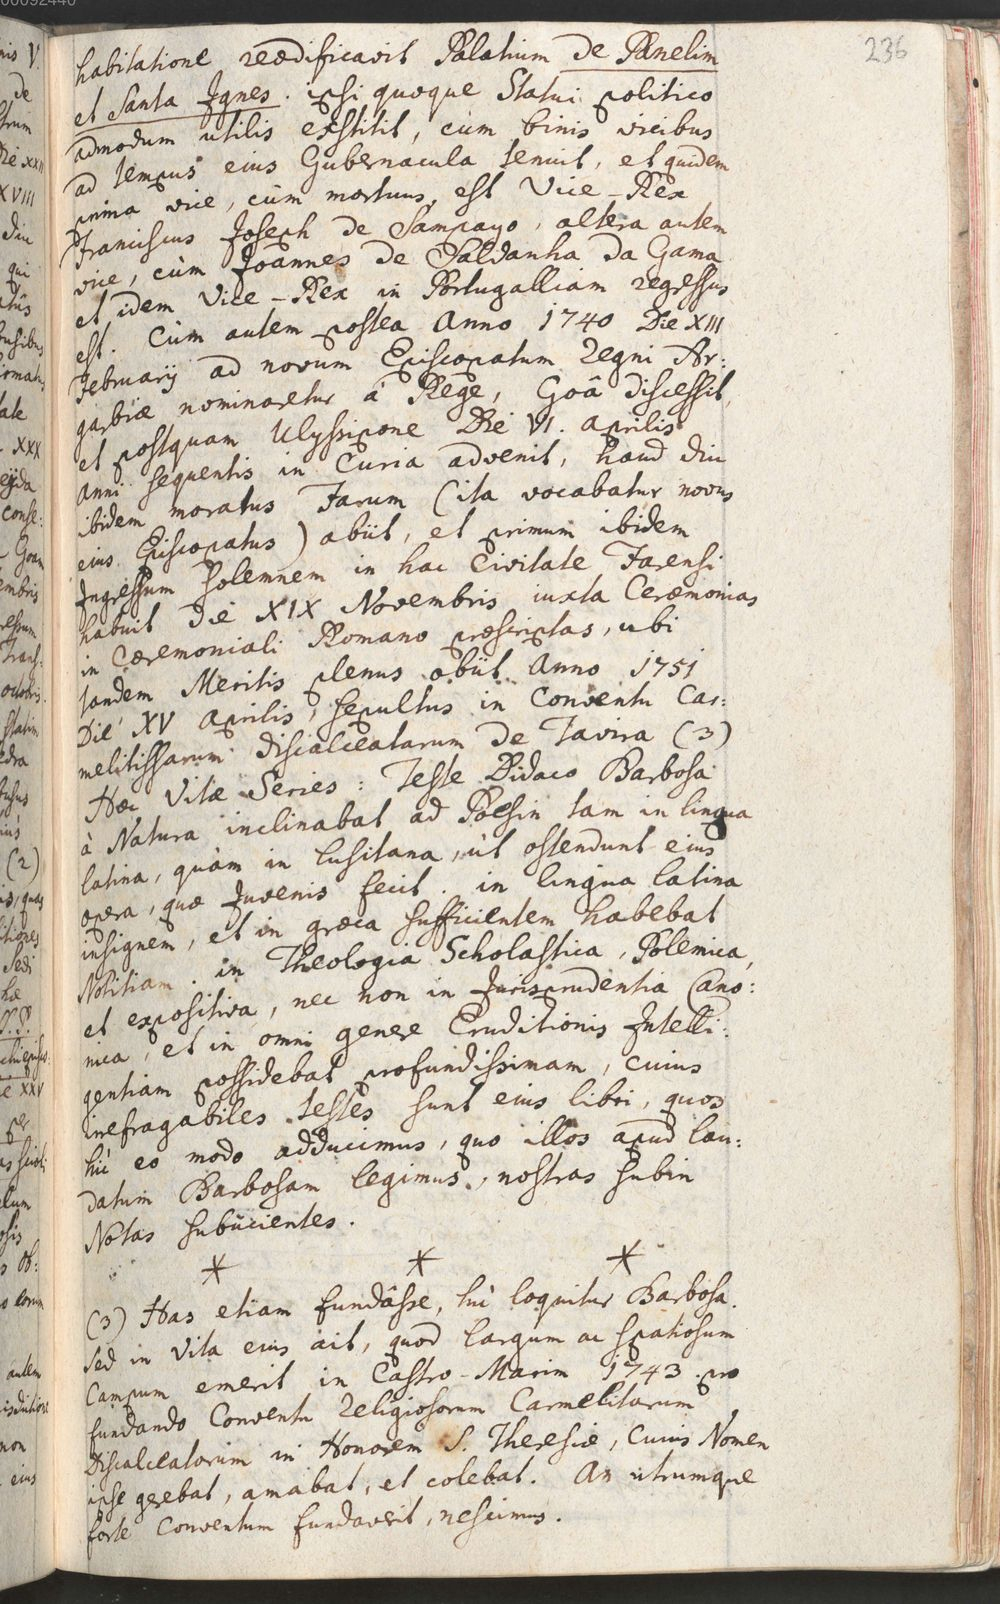 236
habitatione reædificavit Palatium de Panelim
et Santa Jgnes. ipsi quoque Statui politico
admodum utilis exstitit, cum binis vicibus
ad tempus eius Gubernacula tenuit, et quidem
prima vice, cùm mortuus est Vice-Rex
Franciscus Joseph de Sampayo, altera autem
vice, cùm Joannes de Saldanha da Gama
et idem Vice-Rex in Portugalliam regressus
est. Cùm autem postea Anno 1740 Die XIII
Februarij ad novum Episcopatum regni Ar:
garbiæ nominaretur á Rege, Goâ discessit,
et postquam Ulyssipone Die VI. Aprilis
Anni sequentis in Curia advenit, haud diu
ibidem moratus Farum (ita vocabatur novus
eius Episcopatus) abiit, et primum ibidem
Jngressum solemnem in hac Civitate Farensi
habuit Die XIX Novembris iuxta Cæremonias
in Cæremoniali Romano præscriptas, ubi
tandem Meritis plenus obiit Anno 1751
Die XV Aprilis, sepultus in Conventu Car:
melitissarum discalceatarum de Tavira (3)
Hæc Vitæ Series: Teste Didaco Barbosa
à Natura inclinabat ad Poesin tam in lingua
latina, quàm in lusitana, ùt ostendunt eius
opera, quæ Juvenis fecit. in lingua latina
insignem, et in græca sufficientem habebat
Notitiam. in Theologia Scholastica, Polemica,
et expositiva, nec non in Jurisprudentia Cano:
nica, et in omni genere Eruditionis Jntelli:
gentiam possidebat profundissimam, cuius
irrefragabiles testes sunt eius libri, quos
hìc eo modo adducimus, quo illos apud lau:
datum Barbosam legimus, nostras subin
Notas subiicientes.
* * *
(3) Has etiam fundâsse, hìc loquitur Barbosa.
sed in Vita eius ait, quod largum ac spatiosum
Campum emerit in Castro-Marim 1743. pro
fundando Conventu religiosorum Carmelitarum
Discalceatorum in Honorem S. Theresiæ, cuius Nomen
ipse gerebat, amabat, et colebat. An utrumque
forte Conventum fundaverit, nescimus.